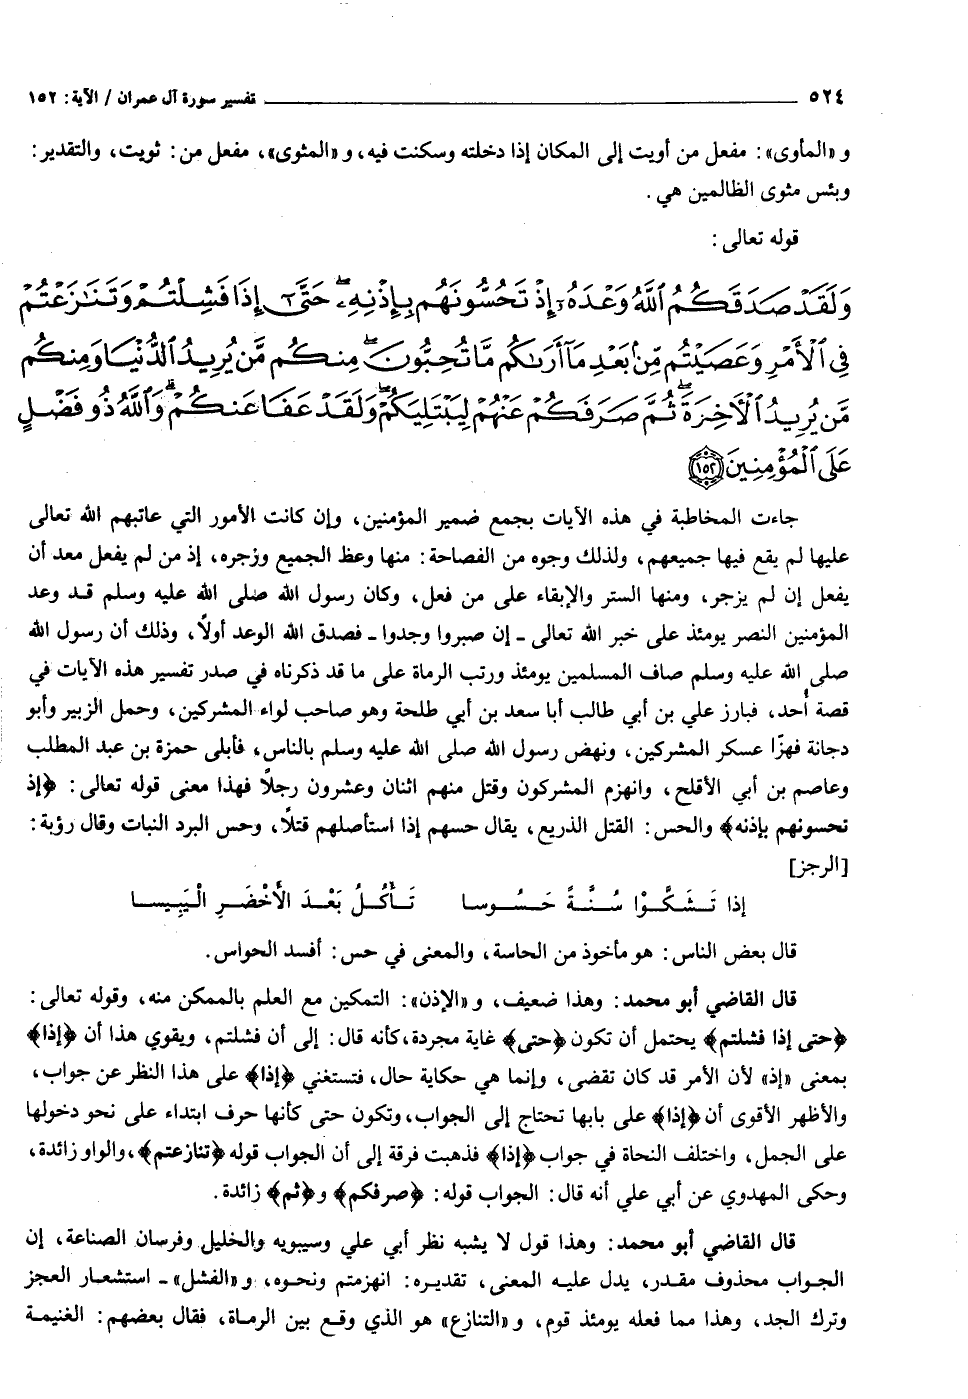 ٥٢٤ تفسير سورة آل عمران / الآية: ١٥٢
و «المأوى»: مفعل من أويت إلى المكان إذا دخلته وسكنت فيه، و «المثوى»، مفعل من: ثويت، والتقدير:
وبئس مثوى الظالمين هي.
قوله تعالى:
وَلَقَدْ صَدَقَكُمُ ٱللَّهُ وَعْدَهُۥٓ إِذْ تَحُسُّونَهُم بِإِذْنِهِۦۖ حَتَّىٰٓ إِذَا فَشِلْتُمْ وَتَنَٰزَعْتُمْ
فِى ٱلْأَمْرِ وَعَصَيْتُم مِّنۢ بَعْدِ مَآ أَرَىٰكُم مَّا تُحِبُّونَۚ مِنكُم مَّن يُرِيدُ ٱلدُّنْيَا وَمِنكُم
مَّن يُرِيدُ ٱلْءَاخِرَةَۚ ثُمَّ صَرَفَكُمْ عَنْهُمْ لِيَبْتَلِيَكُمْۖ وَلَقَدْ عَفَا عَنكُمْۗ وَٱللَّهُ ذُو فَضْلٍ
عَلَى ٱلْمُؤْمِنِينَ ١٥٢
جاءت المخاطبة في هذه الآيات بجمع ضمير المؤمنين، وإن كانت الأمور التي عاتبهم الله تعالى
عليها لم يقع فيها جميعهم، ولذلك وجوه من الفصاحة: منها وعظ الجميع وزجره، إذ من لم يفعل معد أن
يفعل إن لم يزجر، ومنها الستر والإبقاء على من فعل، وكان رسول الله صلى الله عليه وسلم قد وعد
المؤمنين النصر يومئذ على خبر الله تعالى ـ إن صبروا وجدوا ـ فصدق الله الوعد أولاً، وذلك أن رسول الله
صلى الله عليه وسلم صاف المسلمين يومئذ ورتب الرماة على ما قد ذكرناه في صدر تفسير هذه الآيات في
قصة أُحد، فبارز علي بن أبي طالب أبا سعد بن أبي طلحة وهو صاحب لواء المشركين، وحمل الزبير وأبو
دجانة فهزّا عسكر المشركين، ونهض رسول الله صلى الله عليه وسلم بالناس، فأبلى حمزة بن عبد المطلب
وعاصم بن أبي الأقلح، وانهزم المشركون وقتل منهم اثنان وعشرون رجلاً فهذا معنى قوله تعالى: ﴿إذ
تحسونهم بإذنه﴾ والحس: القتل الذريع، يقال حسهم إذا استأصلهم قتلاً، وحس البرد النبات وقال رؤبة:
[الرجز]
إذا تَـشَـكَّـوْا سُـنَّـةً حَـسُـوسا تَـأكُـلُ بَـعْـدَ الأَخْـضَـرِ الْيَبِيسا
قال بعض الناس: هو مأخوذ من الحاسة، والمعنى في حس: أفسد الحواس.
قال القاضي أبو محمد: وهذا ضعيف، و «الإذن»: التمكين مع العلم بالممكن منه، وقوله تعالى:
﴿حتى إذا فشلتم﴾ يحتمل أن تكون ﴿حتى﴾ غاية مجردة، كأنه قال: إلى أن فشلتم، ويقوي هذا أن ﴿إذا﴾
بمعنى «إذ» لأن الأمر قد كان تقضى، وإنما هي حكاية حال، فتستغني ﴿إذا﴾ على هذا النظر عن جواب،
والأظهر الأقوى أن ﴿إذا﴾ على بابها تحتاج إلى الجواب، وتكون حتى كأنها حرف ابتداء على نحو دخولها
على الجمل، واختلف النحاة في جواب ﴿إذا﴾ فذهبت فرقة إلى أن الجواب قوله ﴿تنازعتم﴾، والواو زائدة،
وحكى المهدوي عن أبي علي أنه قال: الجواب قوله: ﴿صرفكم﴾ و ﴿ثم﴾ زائدة.
قال القاضي أبو محمد: وهذا قول لا يشبه نظر أبي علي وسيبويه والخليل وفرسان الصناعة، إن
الجواب محذوف مقدر، يدل عليه المعنى، تقديره: انهزمتم ونحوه، و «الفشل» ـ استشعار العجز
وترك الجد، وهذا مما فعله يومئذ قوم، و «التنازع» هو الذي وقع بين الرماة، فقال بعضهم: الغنيمة